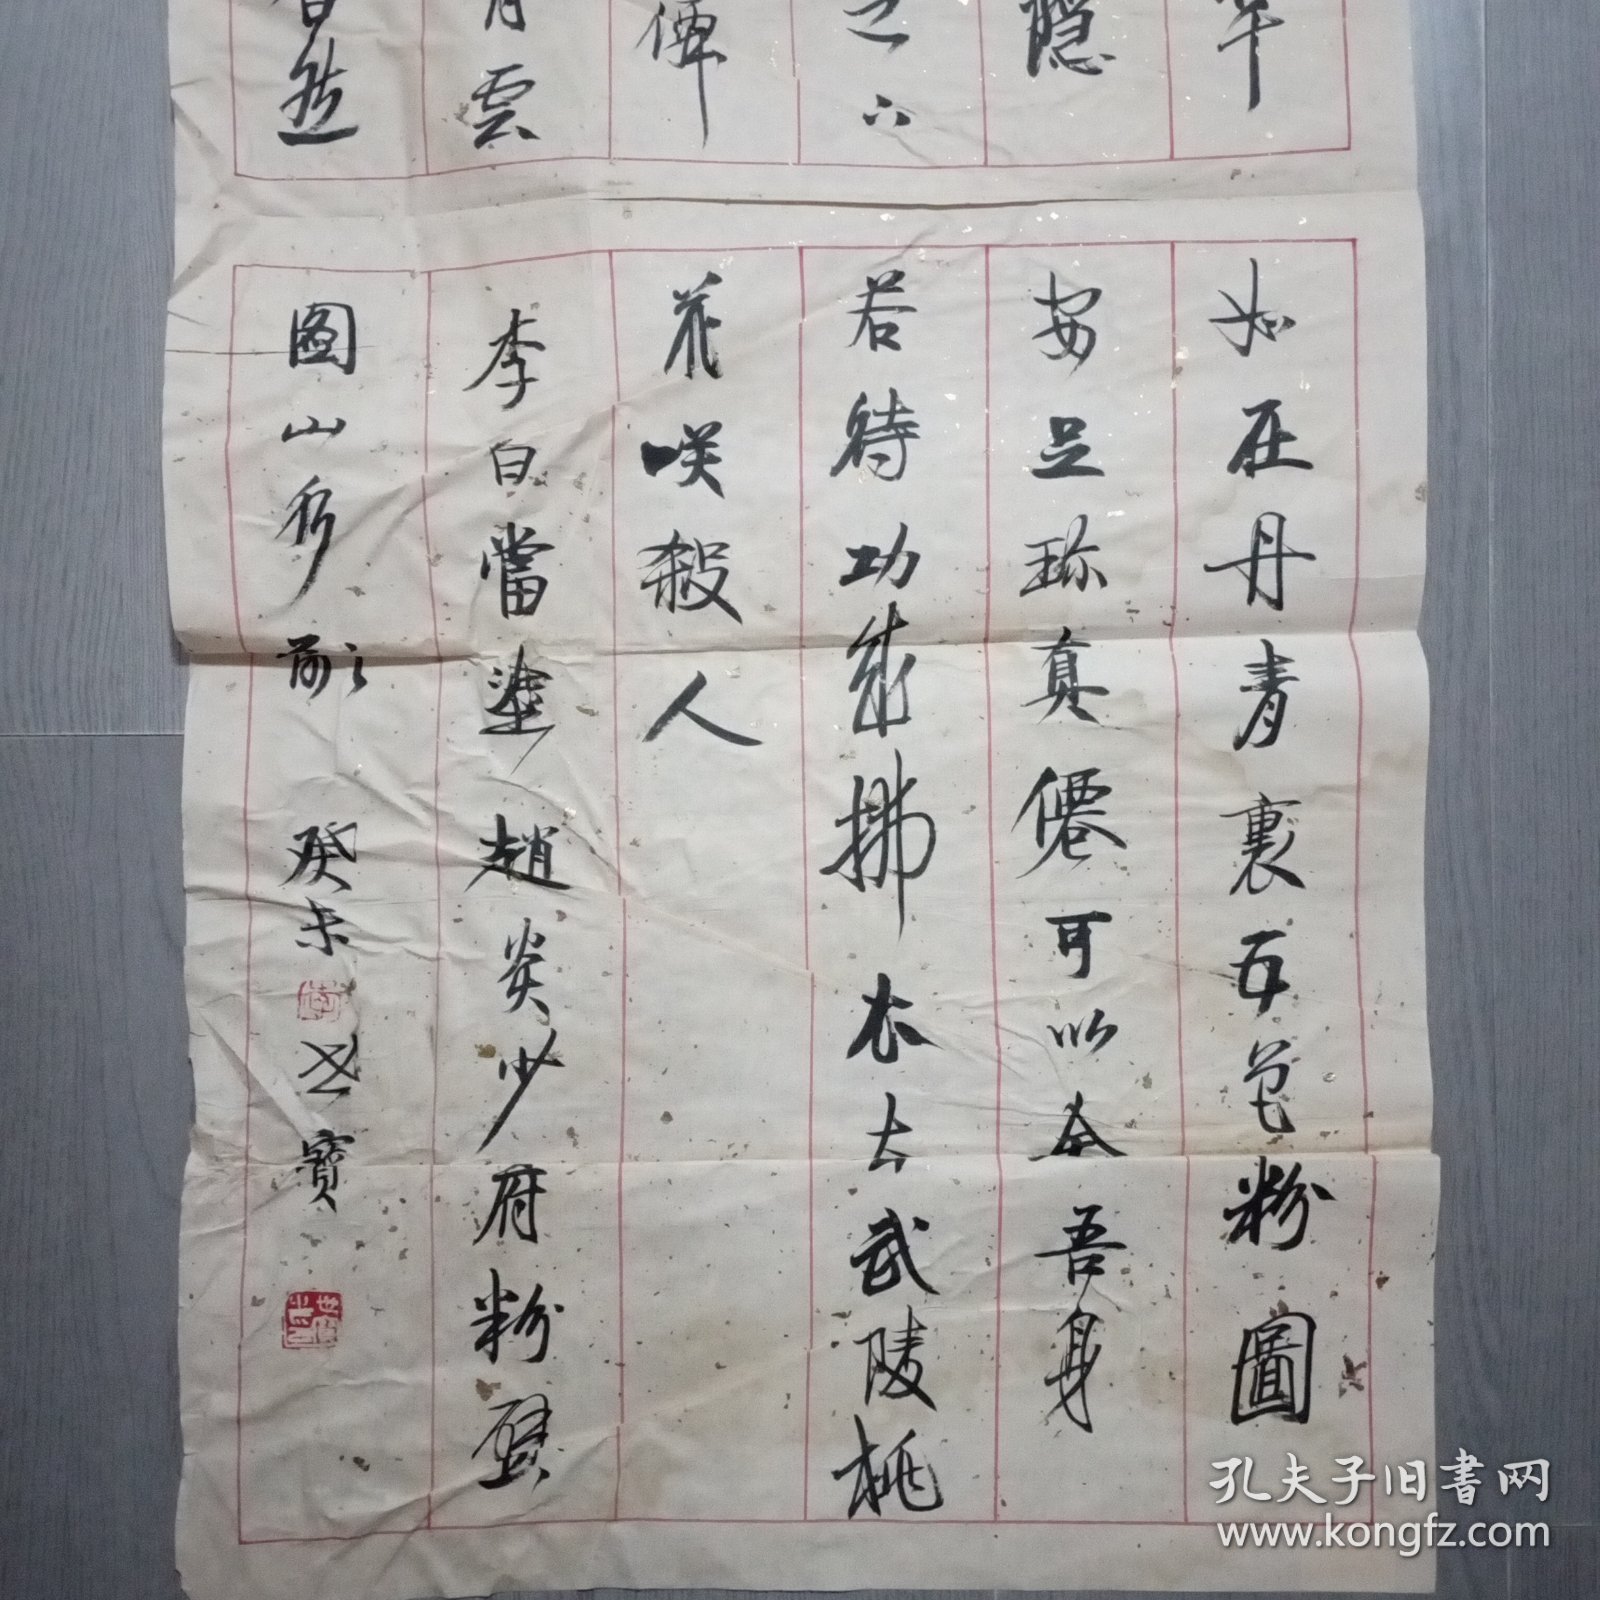 隐
雲
杳然
如在丹青裏五色粉圖
安足珍真僊可以全吾身
若待功成拂衣去武陵桃
花咲殺人
李白當塗趙炎少府粉壁
圖山水歌 癸未 世寶
孔夫子旧书网
www.kongfz.com